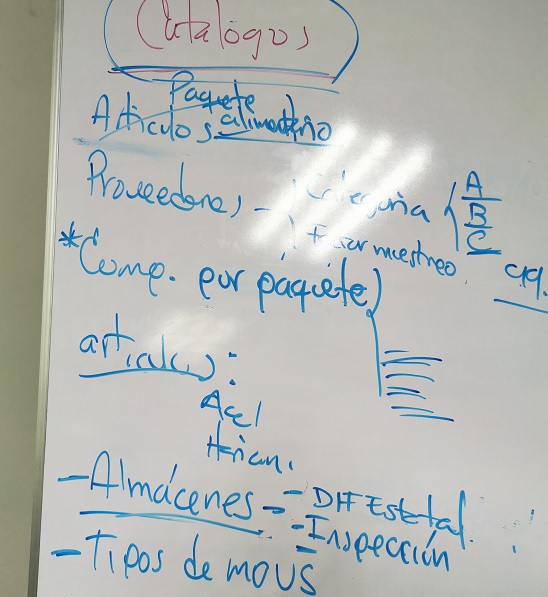 Catálogos
Paquete
Artículos alimenteño
Proveedores - Categoría { A
B
C
Fraar muestreo.
* Comp. por paquete
artículos:
Acel
Harían.
- Almácenes - - DIF Estatal.
- Inspección
- Tipos de MOUS